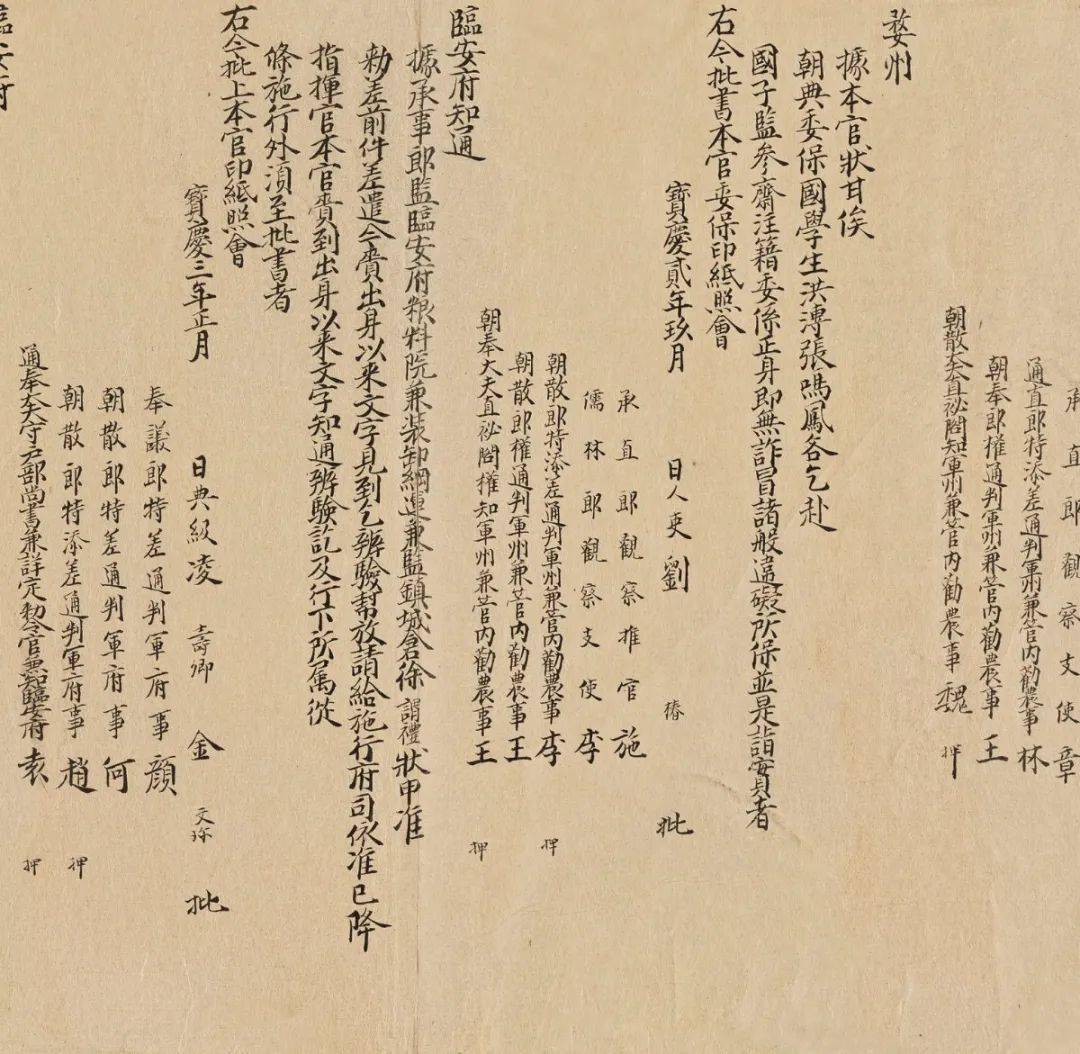 承直郎觀察支使章
通直郎特添差通判軍州兼管內勸農事林
朝奉郎權通判軍州兼管內勸農事王
朝散大夫直祕閣知軍州兼管內勸農事魏 押
婺州
據本官狀甘俟
朝典委保國學生洪溥張鳴鳳各乞赴
國子監參齋注籍委係正身即無詐冒諸般違礙所保並是詣實者
右今批書本官委保印紙照會
寶慶貳年玖月 日人吏劉 椿 批
承直郎觀察推官施
儒林郎觀察支使李
朝散郎特添差通判軍州兼管內勸農事李 押
朝散郎權通判軍州兼管內勸農事王
朝奉大夫直祕閣權知軍州兼管內勸農事王 押
臨安府知通
據承事郎監臨安府粮料院兼裝卸綱運兼監鎮城倉徐謂禮狀申准
勑差前件差遣今賫出身以来文字見到乞辨驗幇放請給施行府司依准已降
指揮官本官賫到出身以来文字知通辨驗訖及行下所属從
條施行外須至批書者
右今批上本官印紙照會
寶慶三年正月 日典級凌 壽卿 金 文 批
奉議郎特差通判軍府事顔
朝散郎特差通判軍府事何
朝散郎特添差通判軍府事趙 押
通奉大夫守户部尚書兼詳定勑令官兼知臨安府袁 押
臨安府